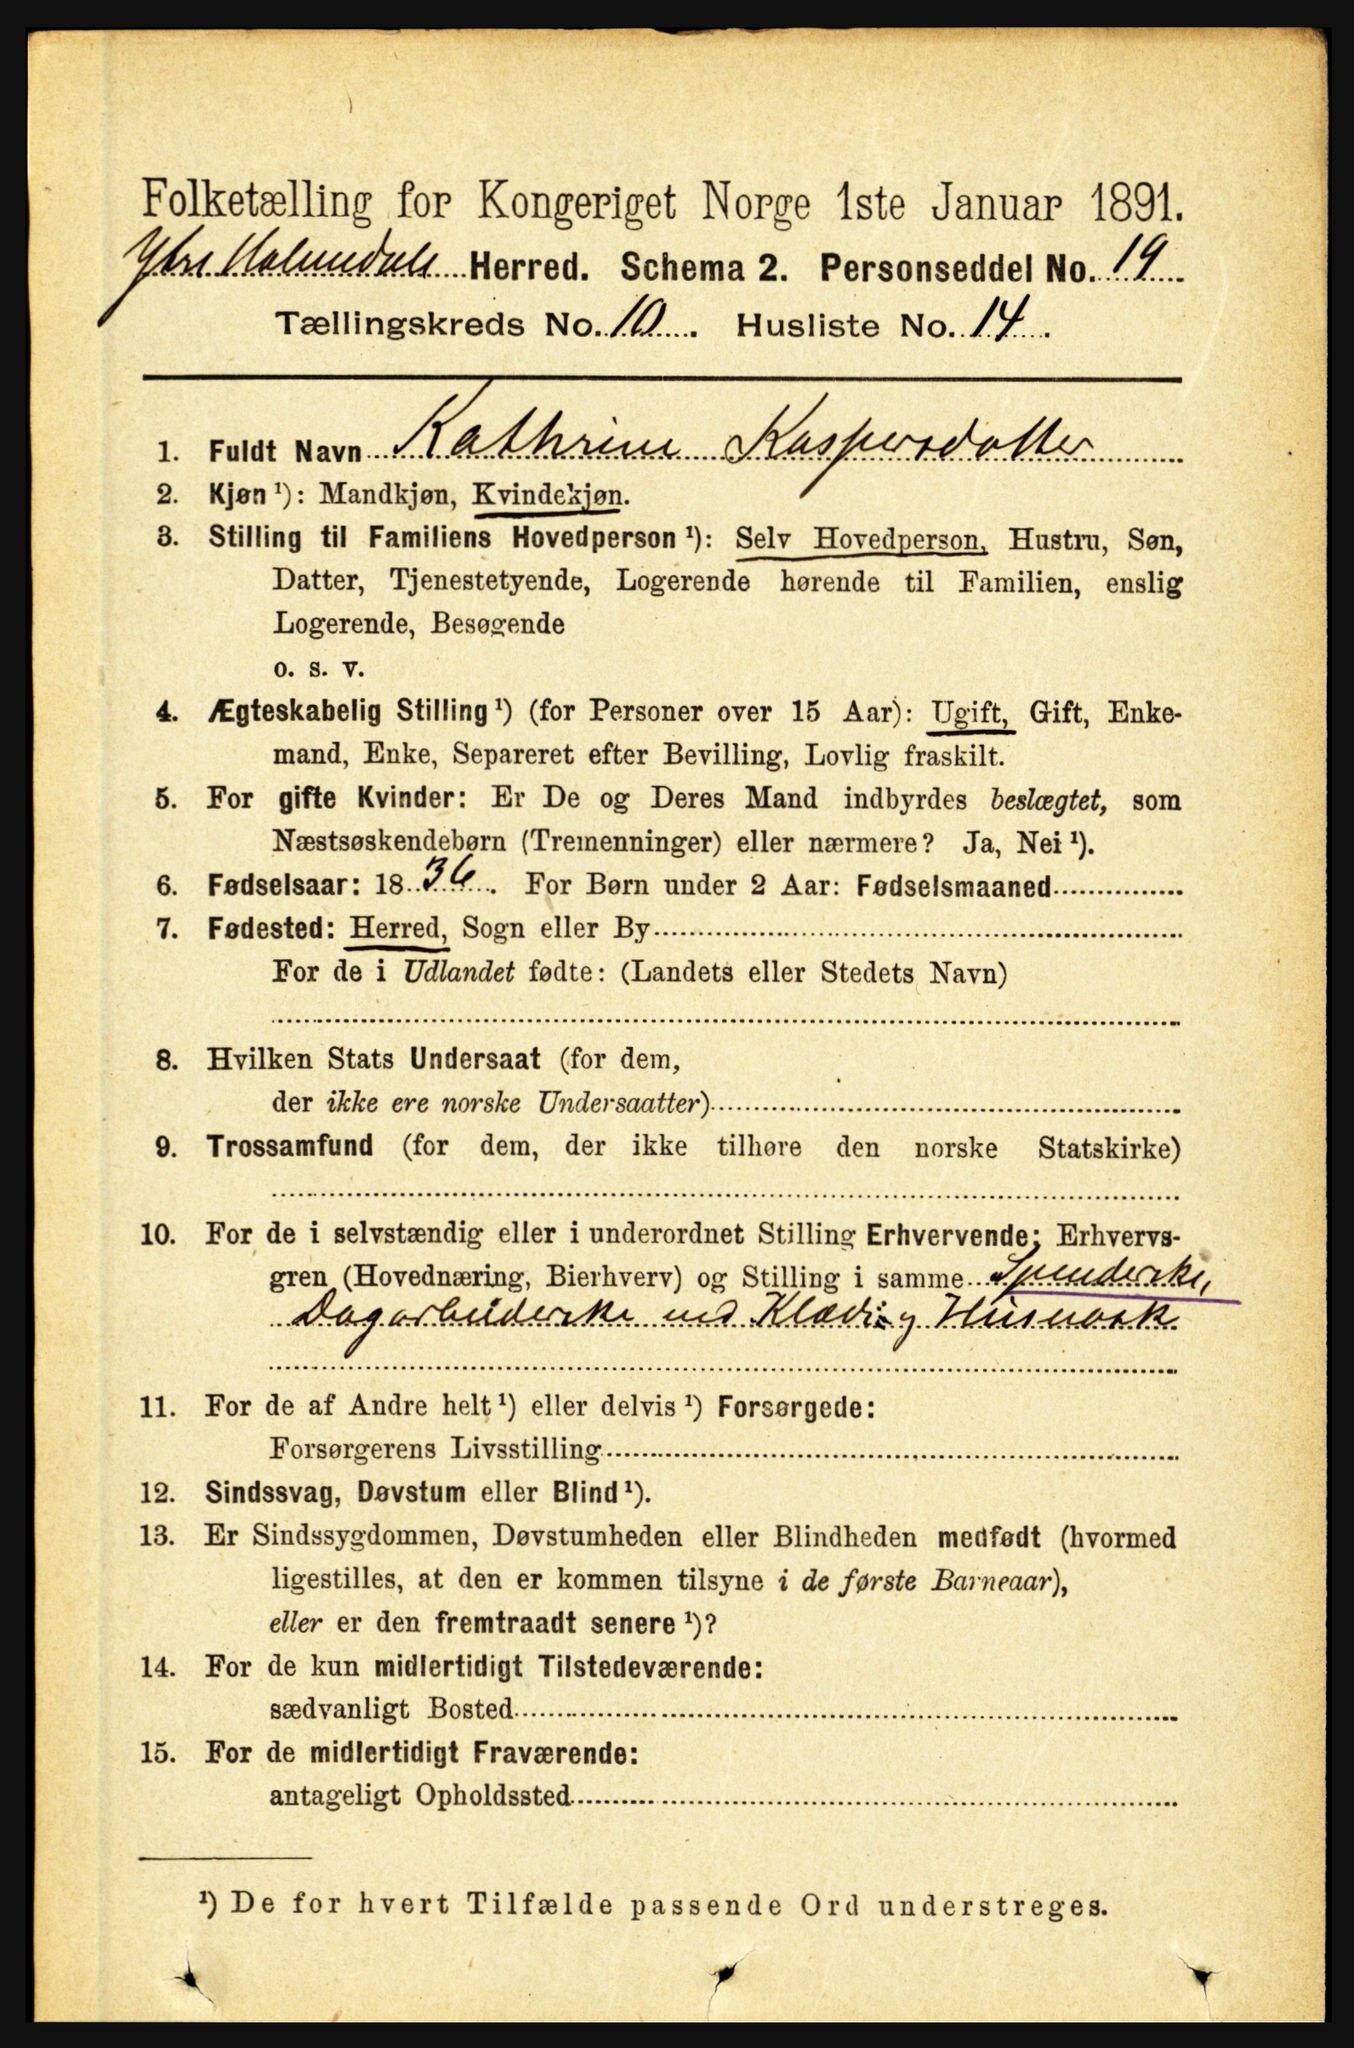 Folketælling for Kongeriget Norge 1ste Januar 1891.
Ytre Holmedals Herred. Schema 2. Personseddel No. 19
Tællingskreds No. 10. Husliste No. 14.
1. Fuldt Navn Kathrine Kaspersdatter
2. Kjøn ¹): Mandkjøn, Kvindekjøn.
3. Stilling til Familiens Hovedperson ¹): Selv Hovedperson, Hustru, Søn,
Datter, Tjenestetyende, Logerende hørende til Familien, enslig
Logerende, Besøgende
o. s. v.
4. Ægteskabelig Stilling ¹) (for Personer over 15 Aar): Ugift, Gift, Enke-
mand, Enke, Separeret efter Bevilling, Lovlig fraskilt.
5. For gifte Kvinder: Er De og Deres Mand indbyrdes beslægtet, som
Næstsøskendebørn (Tremenninger) eller nærmere? Ja, Nei ¹).
6. Fødselsaar: 1836. For Børn under 2 Aar: Fødselsmaaned
7. Fødested: Herred, Sogn eller By
For de i Udlandet fødte: (Landets eller Stedets Navn)
8. Hvilken Stats Undersaat (for dem,
der ikke ere norske Undersaatter)
9. Trossamfund (for dem, der ikke tilhøre den norske Statskirke)
10. For de i selvstændig eller i underordnet Stilling Erhvervende: Erhvervs-
gren (Hovednæring, Bierhverv) og Stilling i samme Spinderske,
Dagarbeiderske ved Klæde: og Husvask
11. For de af Andre helt ¹) eller delvis ¹) Forsørgede:
Forsørgerens Livsstilling
12. Sindssvag, Døvstum eller Blind ¹).
13. Er Sindssygdommen, Døvstumheden eller Blindheden medfødt (hvormed
ligestilles, at den er kommen tilsyne i de første Barneaar),
eller er den fremtraadt senere ¹)?
14. For de kun midlertidigt Tilstedeværende:
sædvanligt Bosted
15. For de midlertidigt Fraværende:
antageligt Opholdssted
¹) De for hvert Tilfælde passende Ord understreges.